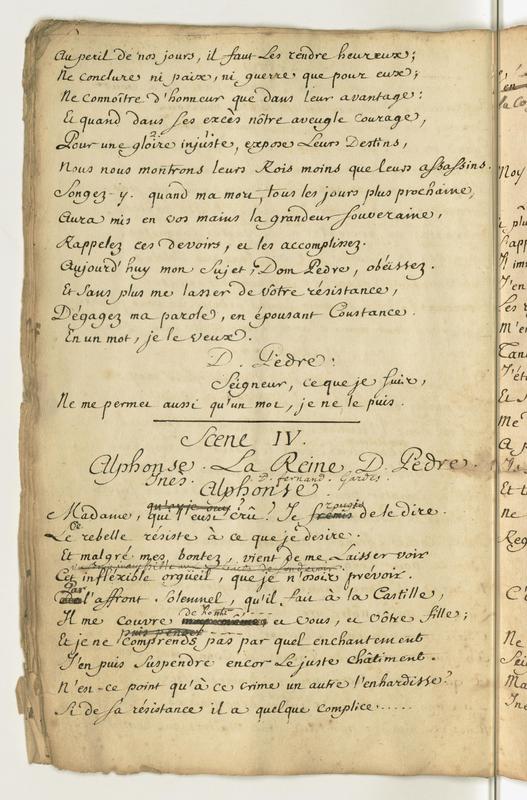 Au peril de nos jours, il faut les rendre heureux;
Ne conclure ni paix, ni guerre que pour eux;
Ne connoître d'honneur que dans leur avantage:
Et quand dans ses excès nôtre aveugle courage,
Pour une gloire injuste, expose Leurs Destins,
Nous nous montrons leurs Rois moins que leurs assassins.
Songez-y. quand ma mort, tous les jours plus prochaine,
Aura mis en vos mains la grandeur souveraine,
Rappelez ces devoirs, et les accomplissez.
Aujourd'huy mon Sujet, Dom Pedre, obéissez.
Et sans plus me lasser de vôtre résistance,
Dégagez ma parole, en épousant Constance.
En un mot, je le veux.
D. Pèdre.
Seigneur, ce que je suis,
Ne me permet aussi qu'un mot, je ne le puis.
Scene IV.
Alphonse. La Reine, D. Pèdre.
Inès. D. fernand. Gardes.
Alphonse.
Madame, qui l'eust crû? Je rougis de le dire.
Ce rebelle résiste à ce que je desire.
Et malgré mes bontez, vient de me Laisser voir
Cet infléxible orgueil, que je n'osois prévoir.
Par l'affront solemnel, qu'il fait à la Castille,
Il me couvre de honte et vous, et vôtre fille;
Et je ne comprends pas par quel enchantement
J'en puis suspendre encor le juste châtiment.
N'est-ce point qu'à ce crime un autre l'enhardisse?
Si de sa résistance il a quelque complice.....